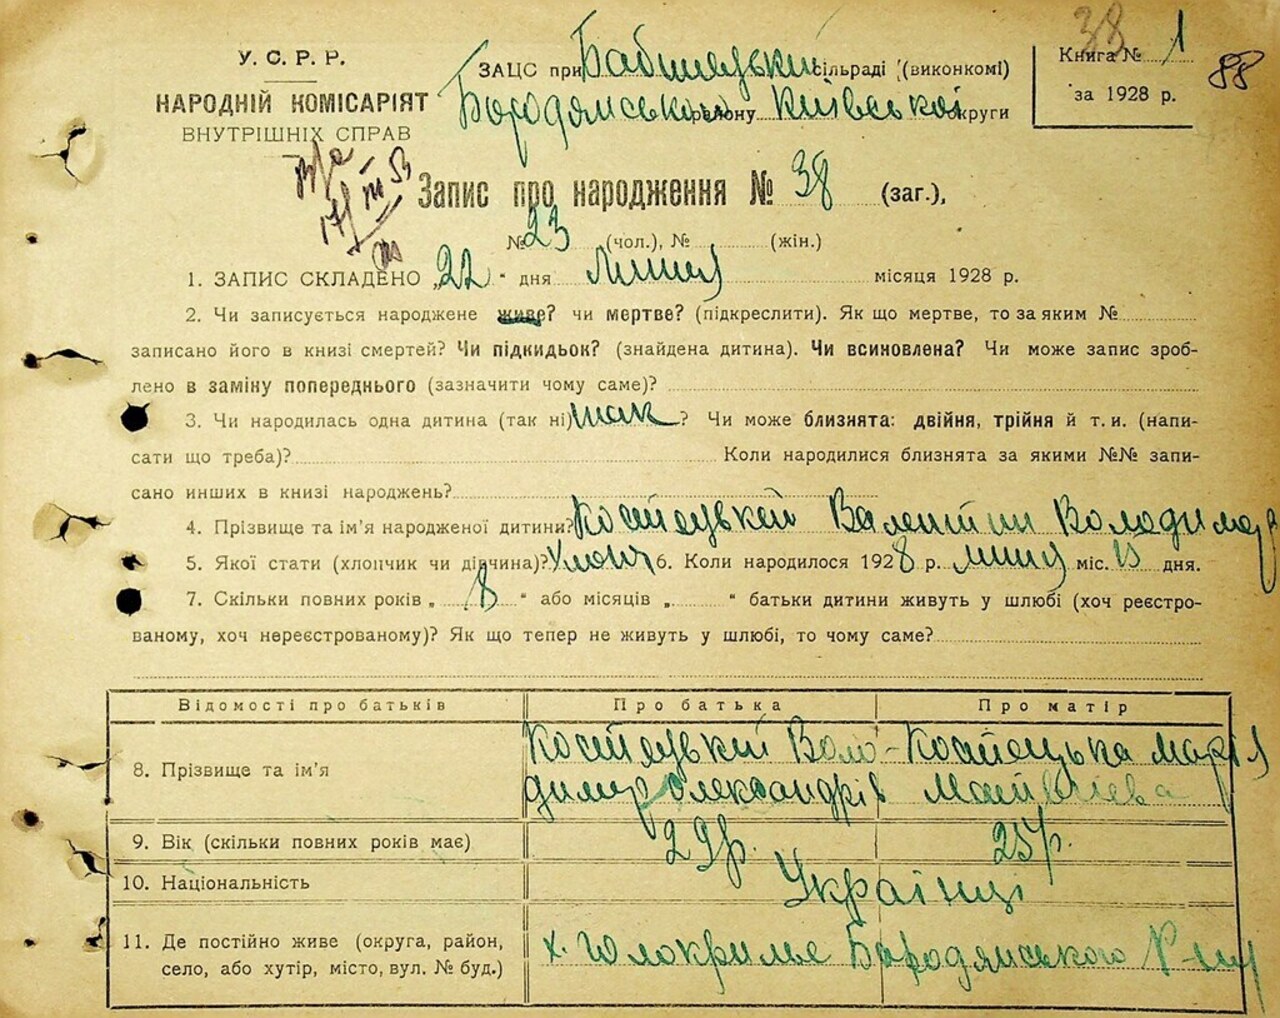 38
У. С. Р. Р.
НАРОДНІЙ КОМІСАРІЯТ
ВНУТРІШНІХ СПРАВ
ЗАЦС при Бабинецький сільраді (виконкомі)
Бородянського району Київської округи
Книга № 1
за 1928 р.
88
Запис про народження № 38 (заг.),
№ 23 (чол.), № (жін.)
1. ЗАПИС СКЛАДЕНО „22“ дня Липня місяця 1928 р.
2. Чи записується народжене живе? чи мертве? (підкреслити). Як що мертве, то за яким №
записано його в книзі смертей? Чи підкидьок? (знайдена дитина). Чи всиновлена? Чи може запис зроб-
лено в заміну попереднього (зазначити чому саме)?
3. Чи народилась одна дитина (так ні) так? Чи може близнята: двійня, трійня й т. и. (напи-
сати що треба)? Коли народилися близнята за якими №№ запи-
сано инших в книзі народжень?
4. Прізвище та ім’я народженої дитини? Костецький Валентин Володимир
5. Якої стати (хлопчик чи дівчина)? Хлопч 6. Коли народилося 1928 р. липня міс. 15 дня.
7. Скільки повних років „ 8 “ або місяців „ “ батьки дитини живуть у шлюбі (хоч реєстро-
ваному, хоч нереєстрованому)? Як що тепер не живуть у шлюбі, то чому саме?
Відомості про батьків Про батька Про матір
8. Прізвище та ім’я Костецький Воло- Костецька Марія
димир Олександрів Матвієва
9. Вік (скільки повних років має) 29 р. 25 р.
10. Національність Українці
11. Де постійно живе (округа, район,
село, або хутір, місто, вул. № буд.) х.Голокрилье Бородянського Р-ну